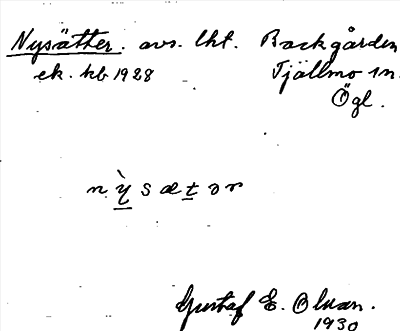 Nysätter. avs. lht. Backgården
ek. kb 1928 Tjällmo sn.
Ögl.
nỳsætər
Gustaf E. Olsson.
1930